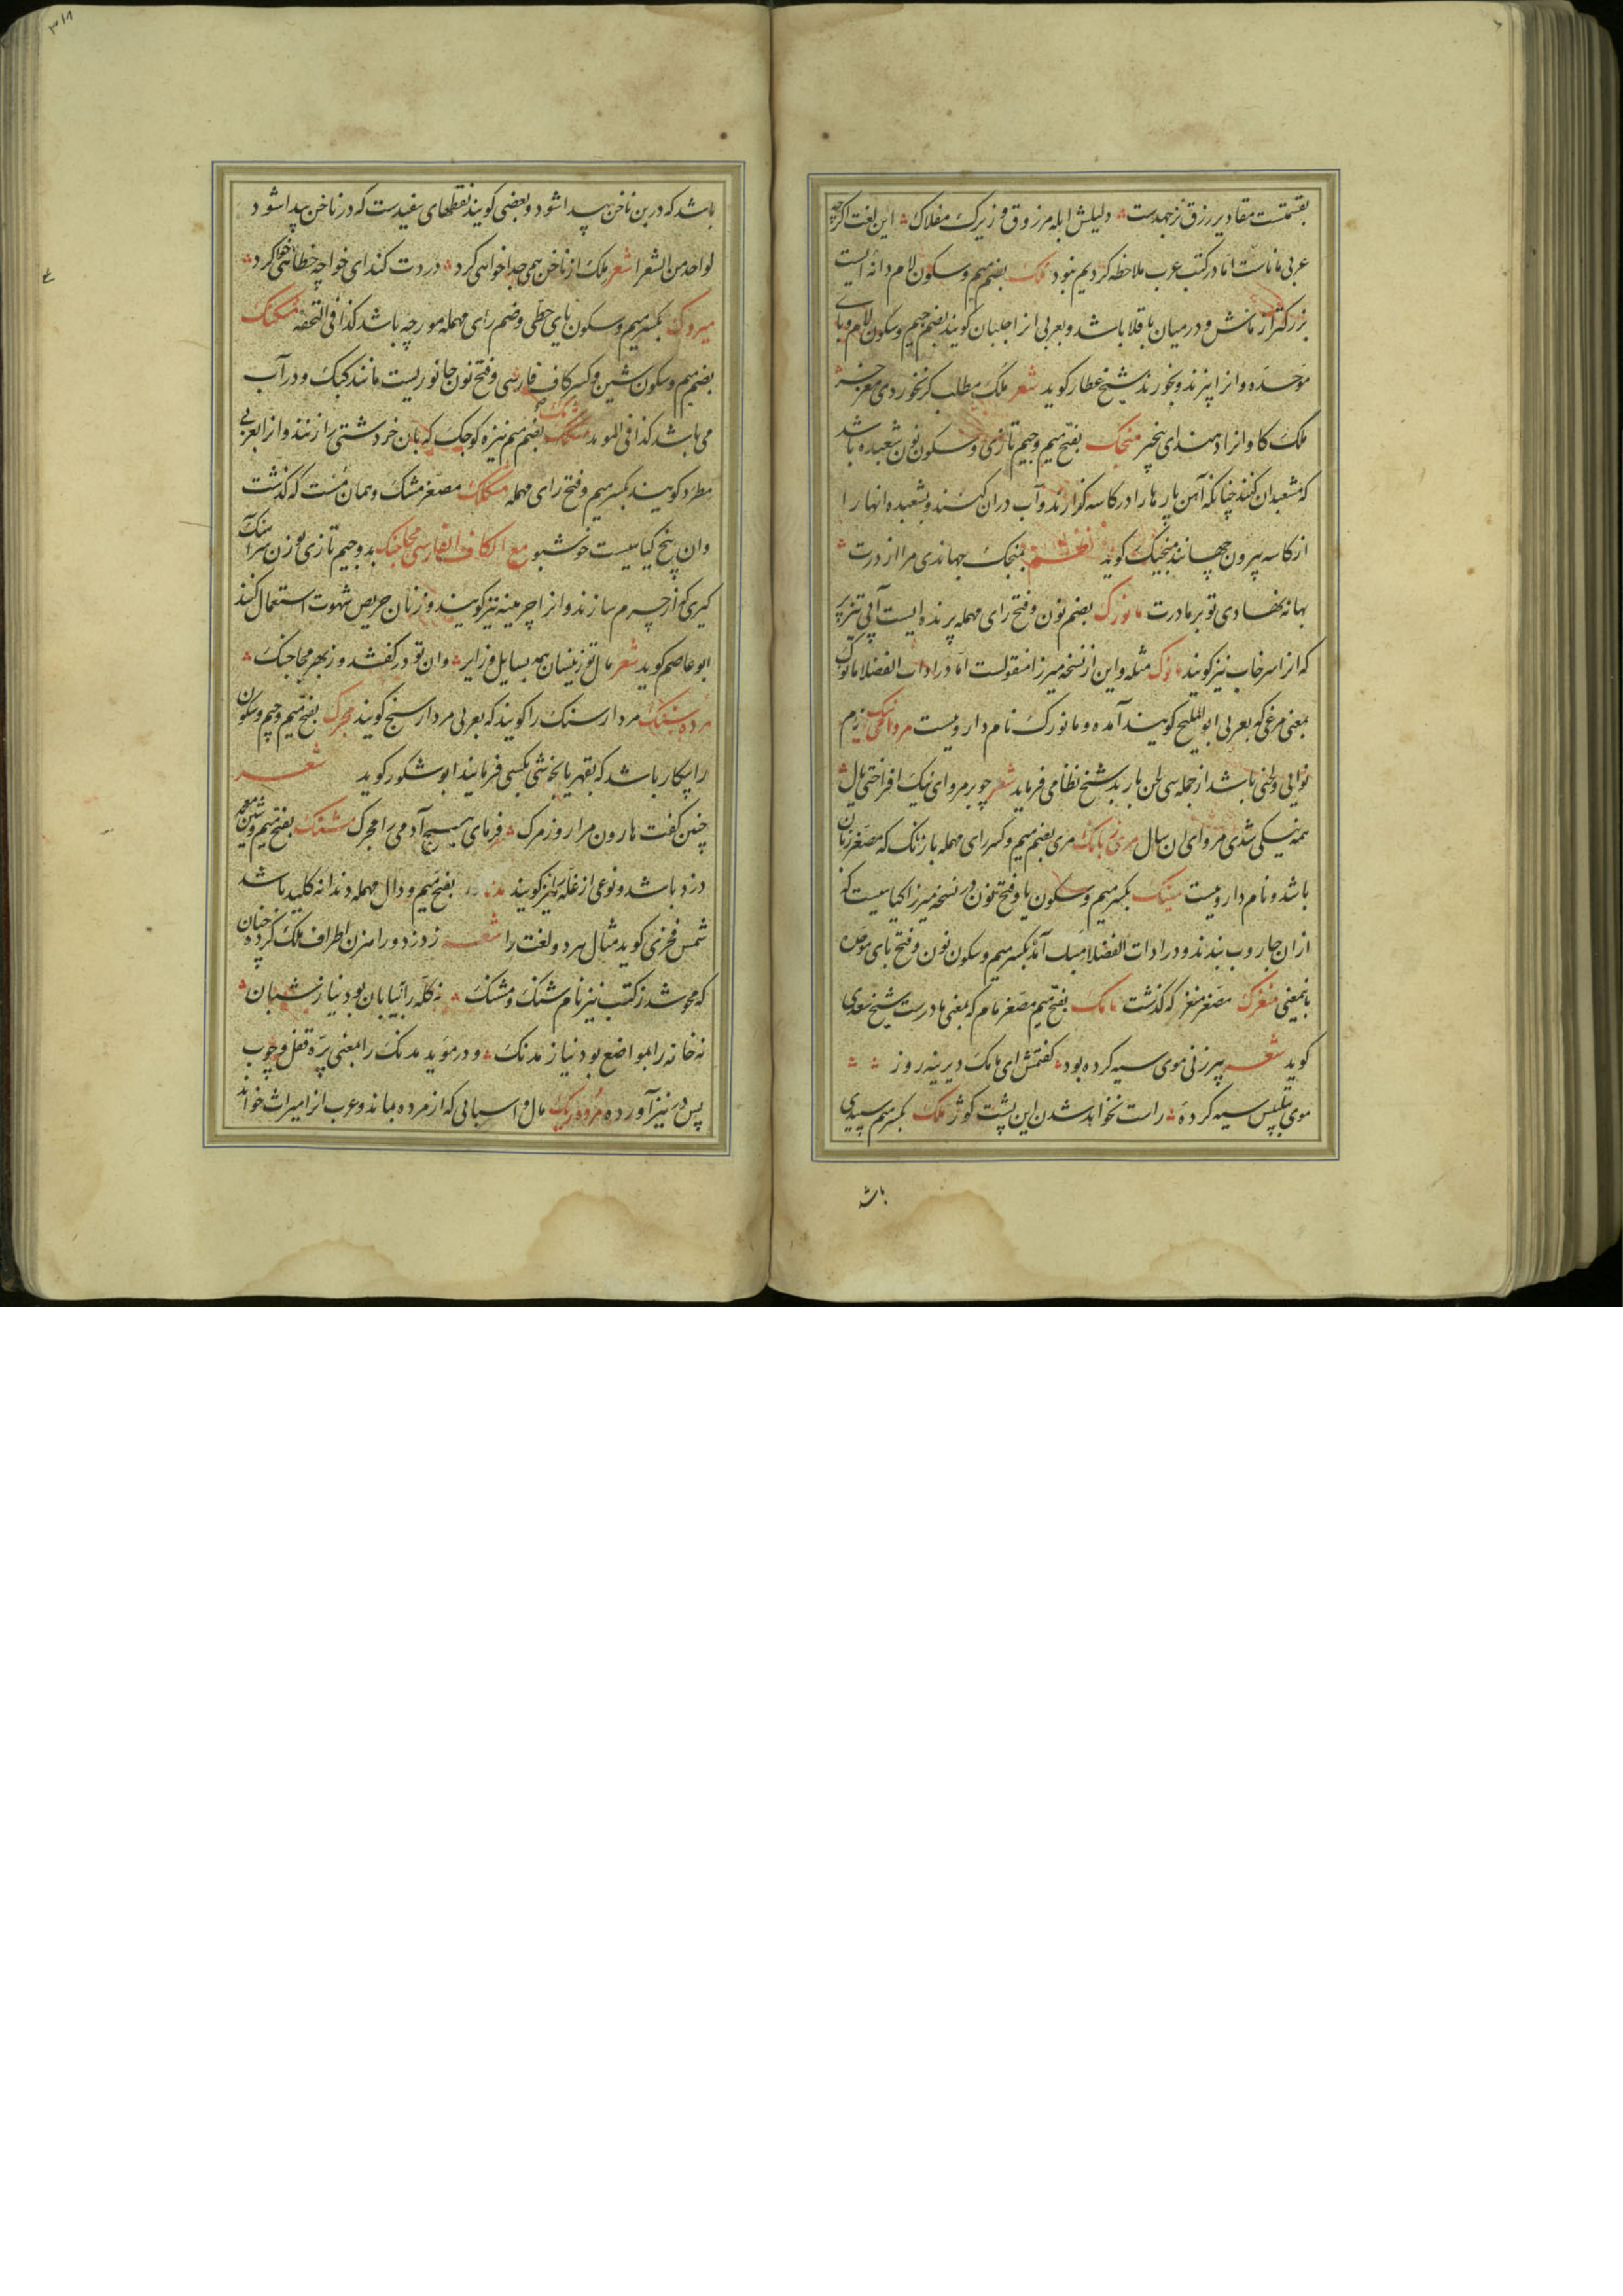 بقسمتست مقادیر رزق نز جهدست دلیلش ابله مرزوق و زیرک مفلاک این لغت اگرچه
عربی ماناست اما در کتب عرب ملاحظه کردیم نبود ملک بضم میم و سکون لام دانه ایست
بزرکتر از ماش و در میان باقلا باشد و بعربی انرا جلبان کویند بضم جیم و سکون لام و بای
موحده و انرا پزند و بخورند شیخ عطار کوید شعر ملک مطلب کر نخوردی مغز خر
ملک کاوانرا دهند ای بیخبر منجک بفتح میم و جیم تازی و سکون نون شعبده باشد
که مشعبدان کنند چنانکه آهن پارها را در کاسه گذارند و آب دران کنند و بشعبده انها را
از کاسه بیرون جهانند منجیک کوید نظم بمنجک جهاندی مرا از درت
بهانه نهادی تو بر مادرت مانورک بضم نون و فتح رای مهمله پرنده ایست آبی تیزپر
که انرا سرخاب نیز کویند مانوک مثله و این از نسخه میرزا منقولست اما در ادات الفضلا مانوک
بمعنی مرغی که بعربی ابو الملیح کویند آمده و مانورک نام دارویست مروای نیک نام
نوایی و لحنی باشد از جمله سی لحن باربد شیخ نظامی فرماید شعر چو بر مروای نیک افراختی یال
همه نیکی شدی مروای ان سال مری زبانک مری بضم میم و کسر رای مهمله با زبانک که مصغر زبان
باشد و نام دارویست مینک بکسر میم و سکون یا و فتح نون در نسخه میرزا کیاهیست که
ازان جاروب بندند و در ادات الفضلا منبک آمده بکسر میم و سکون نون و فتح بای موحده
باینمعنی مغزک مصغر مغز که کذشت مامک بفتح میم مصغر مام که بمعنی مادرست شیخ سعدی
کوید شعر پیر زنی موی سیه کرده بود کفتمش ای مامک دیرینه روز
موی بتلبیس سیه کرده راست نخواهد شدن این پشت کوژ ملک بکسر میم سپیدی
باشد
باشد که در بن ناخن پیدا شود و بعضی کویند نقطهای سفیدست که در ناخن پیدا شود
لواحد من الشعرا شعر ملک از ناخن همی جدا خواهی کرد دردت کند ای خواجه خطا خواهی کرد
میروک بکسر میم و سکون یای حطی و ضم رای مهمله مورچه باشد کذا فی التحفه مشکنک
بضم میم و سکون شین و کسر کاف فارسی و فتح نون جانوریست مانند کبک و در آب
می باشد کذا فی الموید بضم میم نیزه کوچک که بان خرد شستی را زنند و انرا بعربی
مطرد کویند بکسر میم و فتح رای مهمله مشکک مصغر مشک و همان مشت که کذشت
وان بیخ کیاهیست خوشبو مع الکاف الفارسی مجاجنک بدو جیم تازی بوزن سراهنک
کیری که از چرم سازند و انرا چرمینه نیز کویند و زنان حریص شهوت استعمال کنند
ابو عاصم کوید شعر مال تو زینسان همه بسایل و زایر وان تو در کفشد و ز بهر مجاجنک
مرده سنک مردار سنک را کویند که بعربی مردار سنج کویند مجرک بفتح میم و جیم و سکون
را بیکار باشد که بقهر یا بخوشی بکسی فرمایند ابو شکور کوید شعر
چنین کفت هارون مرا روز مرک مفرمای هیچ آدمی را مجرک مشنک بفتح میم و شین معجمه
دزد باشد و نوعی از غله نیز کویند مدنک بفتح میم و دال مهمله دندانه کلید باشد
شمس فخری کوید مثال هر دو لغت را شعر ز دزد و راهزن اطراف ملک کرده چنان
که محو شد ز کتب نیز نام شنک و مشنک نه کله را بیابان بود نیاز شبان
نه خانه را بمواضع بود نیاز مدنک و در موید مدنک را بمعنی پره قفل و چوب
پس در نیز آورده مرده ریک مال و اسبابی که از مرده بماند و عرب انرا میراث خواند